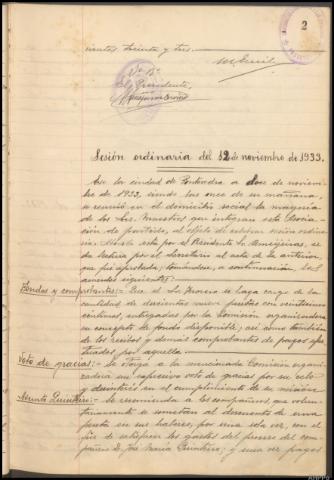 2
cientos treinta y tres.
Vº Bº
El Presidente,
Sesión ordinaria del 12 de noviembre de 1933.
En la ciudad de Pontevedra a doce de noviem-
bre de 1933, siendo las once de su mañana,
se reunió en el domicilio social la mayoría
de los Sres. Maestros que integran esta Asocia-
ción de partido, al objeto de celebrar sesión ordina-
ria. Abierta ésta por el Presidente Sr. Ameijeiras, se
da lectura por el Secretario al acta de la anterior,
que fué aprobada; tomándose, a continuación, los
acuerdos siguientes:
Fondos y comprobantes:- Que el Sr. Tesorero se haga cargo de la
cantidad de doscientas nueve pesetas con veinticinco
céntimos, entregadas por la Comisión organizadora
en concepto de fondo disponible; así como también
de los recibos y demás comprobantes de pagos efec-
tuados por aquella
Voto de gracias:- Se otorga a la mencionada Comisión organi-
zadora un expresivo voto de gracias por su celo
y desinterés en el cumplimiento de su misión
Asunto Quinteiro:- Se recomienda a los compañeros, que volun-
tariamente se sometan al descuento de una
peseta en sus haberes, por una sola vez, con el
fin de satisfacer los gastos del proceso del com-
pañero D. José María Quinteiro; y una vez pagos